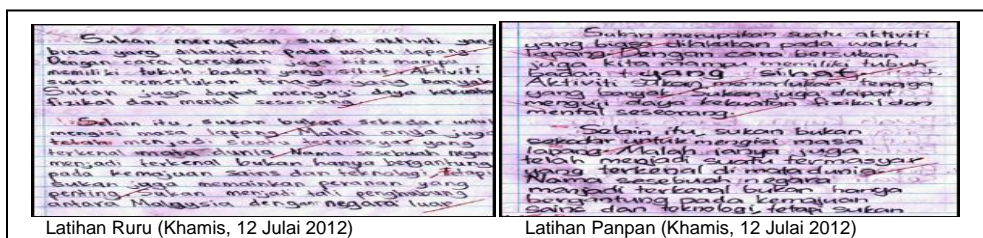 Sukan merupakan suatu aktiviti yang
biasa yang dilakukan pada waktu lapang
Dengan cara bersukan juga kita mampu
memiliki tubuh badan yang sihat. Aktiviti
sukan memerlukan tenaga yang banyak
Sukan juga dapat menguji daya kekuatan
fizikal dan mental seseorang
Selain itu, sukan bukan sekadar untuk
mengisi masa lapang. Malah anya juga
telah menjadi suatu termasyar yang
mata dunia. Nama sesebuah negara
menjadi terkenal bukan hanya bergantung
pada kemajuan sains dan teknologi, tetapi
sukan juga memainkan peranan yang
penting. Sukan menjadi tali penghubung
antara Malaysia dengan negara luar
Latihan Ruru (Khamis, 12 Julai 2012)
Sukan merupakan suatu aktiviti
yang biasa dilakukan pada waktu
lapang. Dengan cara bersukan
juga kita mampu memiliki tubuh
badan yang sihat.
Aktiviti sukan memerlukan tenaga
yang banyak. Sukan juga dapat
menguji daya kekuatan fizikal dan
mental seseorang.
Selain itu, sukan bukan
sekadar untuk mengisi masa
lapang. Malah ianya juga
telah menjadi suatu termasyar
yang terkenal di mata dunia.
Nama sesebuah negara
menjadi terkenal bukan hanya
bergantung pada kemajuan
sains dan teknologi, tetapi sukan
Latihan Panpan (Khamis, 12 Julai 2012)